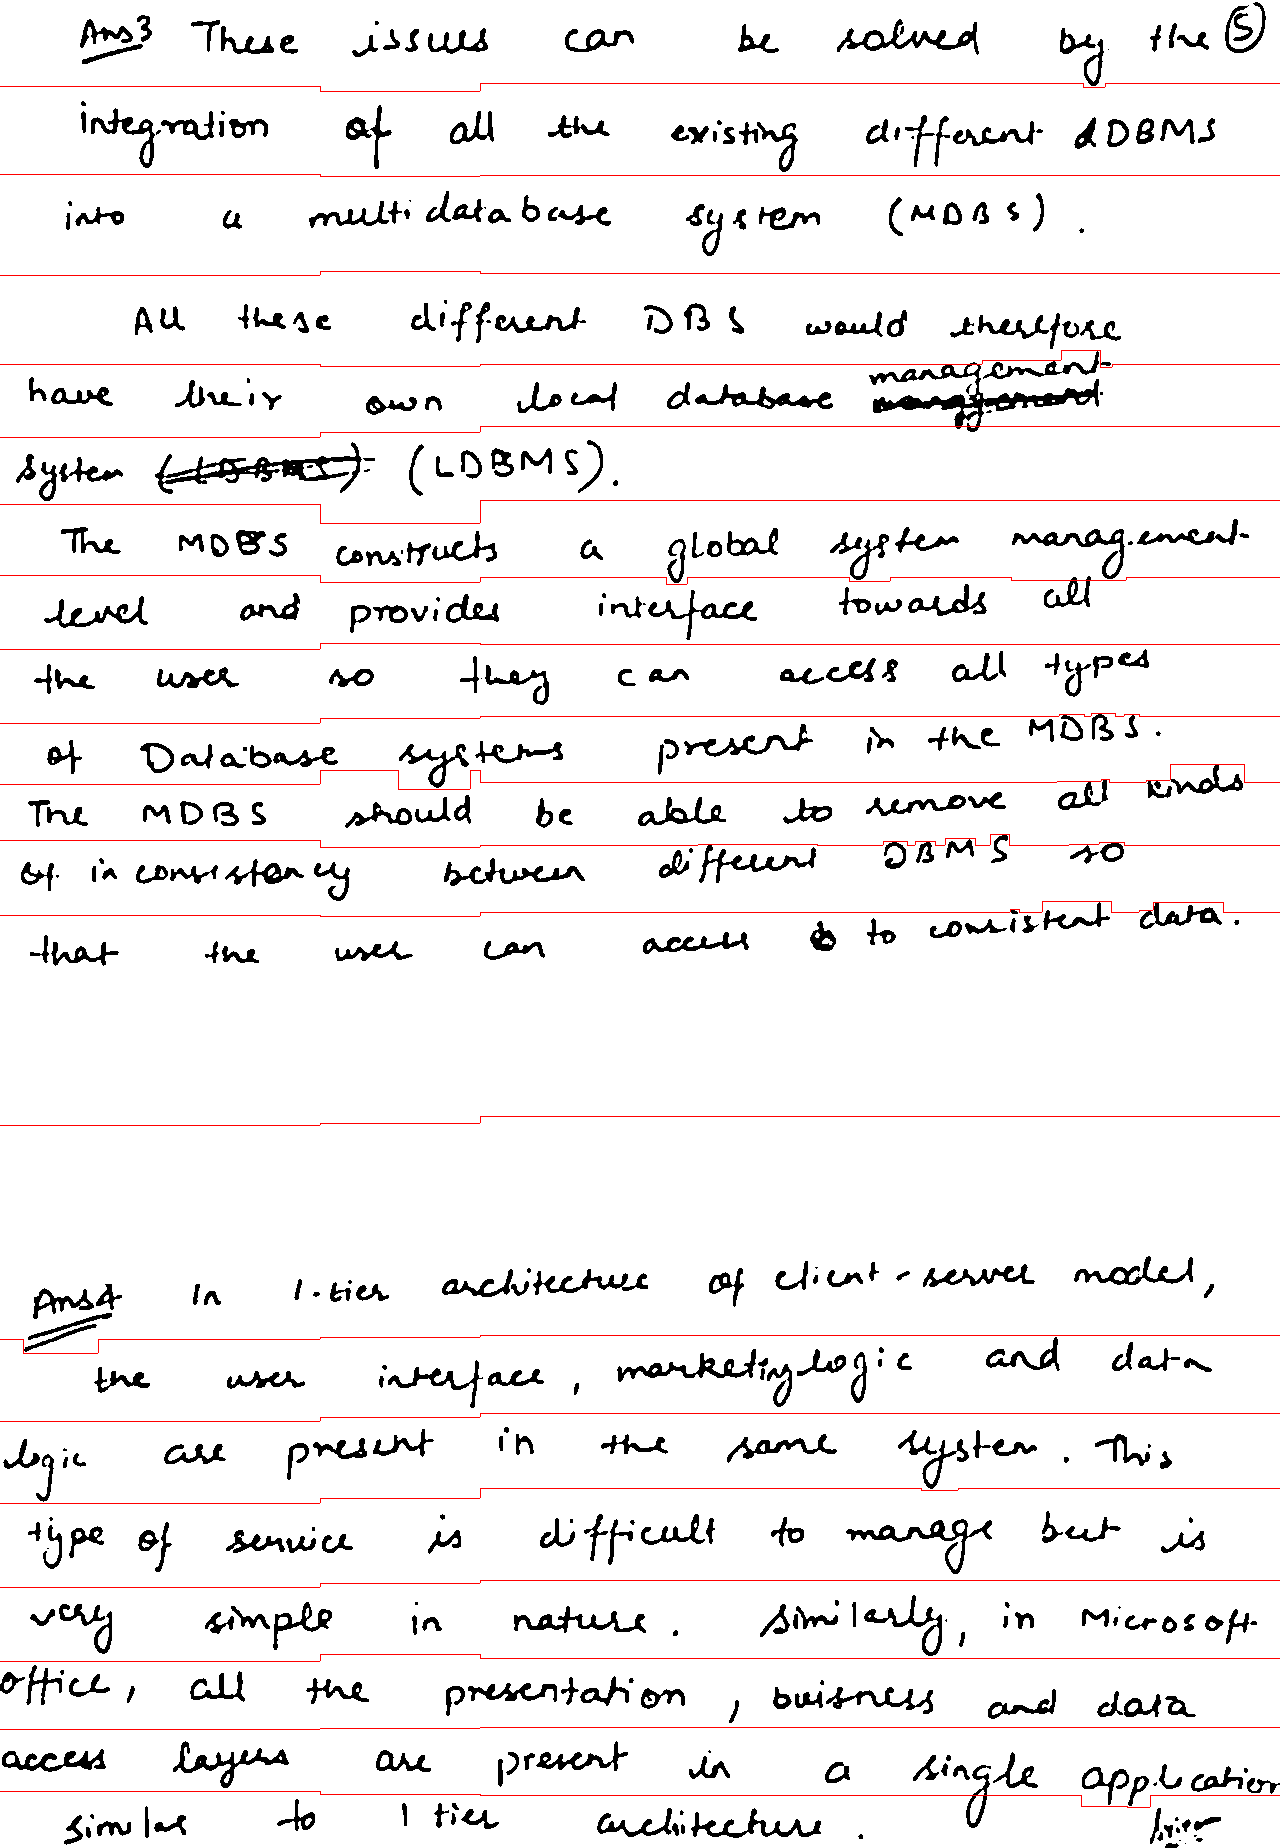 Ans3 These issues can be solved by the 5
integration of all the existing different dDBMS
into a multidatabase system (MDBS).
All these different DBS would therefore
have their own local database management
system (LDBMS).
The MDBS constructs a global system management
level and provides interface towards all
the user so they can access all types
of Database systems present in the MDBS.
The MDBS should be able to remove all kinds
of inconsistency between different DBMS so
that the user can access to consistent data.
Ans4 In 1-tier architecture of client-server model,
the user interface, marketing logic and data
logic are present in the same system. This
type of service is difficult to manage but is
very simple in nature. Similarly, in Microsoft
office, all the presentation, buisness and data
access layers are present in a single application
similar to 1 tier architecture.